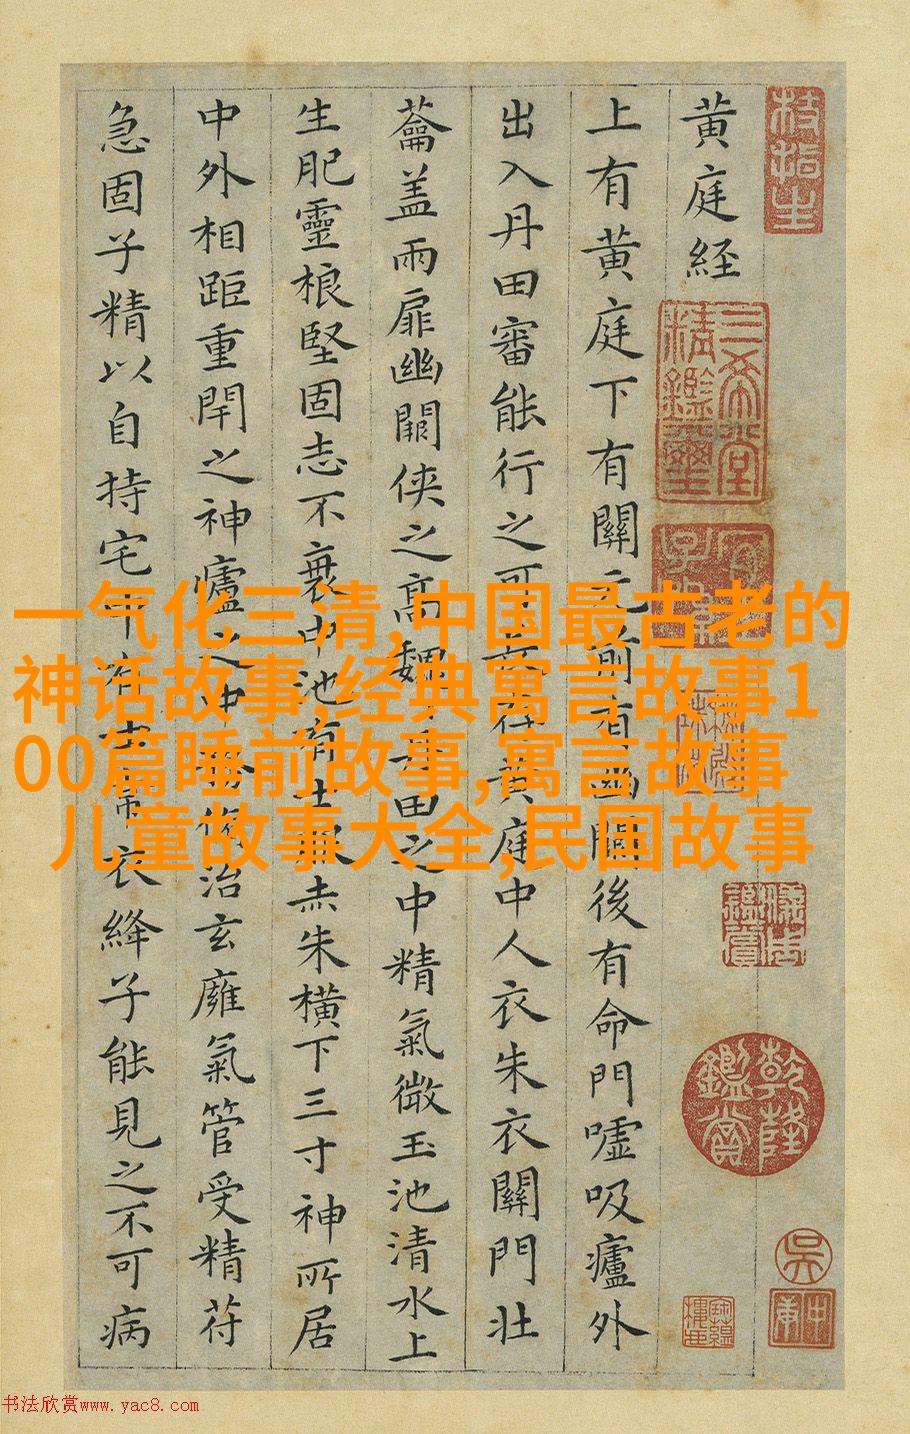 枝指生
黄庭経
三希堂精鑑璽
乾隆鑑賞
吳
上有黄庭下有關元前有幽闕後有命門嘘吸廬外
出入丹田審能行之可長存黄庭中人衣朱衣關門壮
蘥盖兩扉幽闕俠之高巍丹田之中精氣微玉池清水上
生肥靈根堅固志不衰中池有士赤朱横下三寸神所居
中外相距重閈之神廬之中脩治玄廱氣管受精苻
急固子精以自持宅中有士常衣絳子能見之不可病
一气化三清,中国最古老的
神话故事,经典寓言故事1
00篇睡前故事,寓言故事
儿童故事大全,民国故事
书法欣赏www.yac8.com